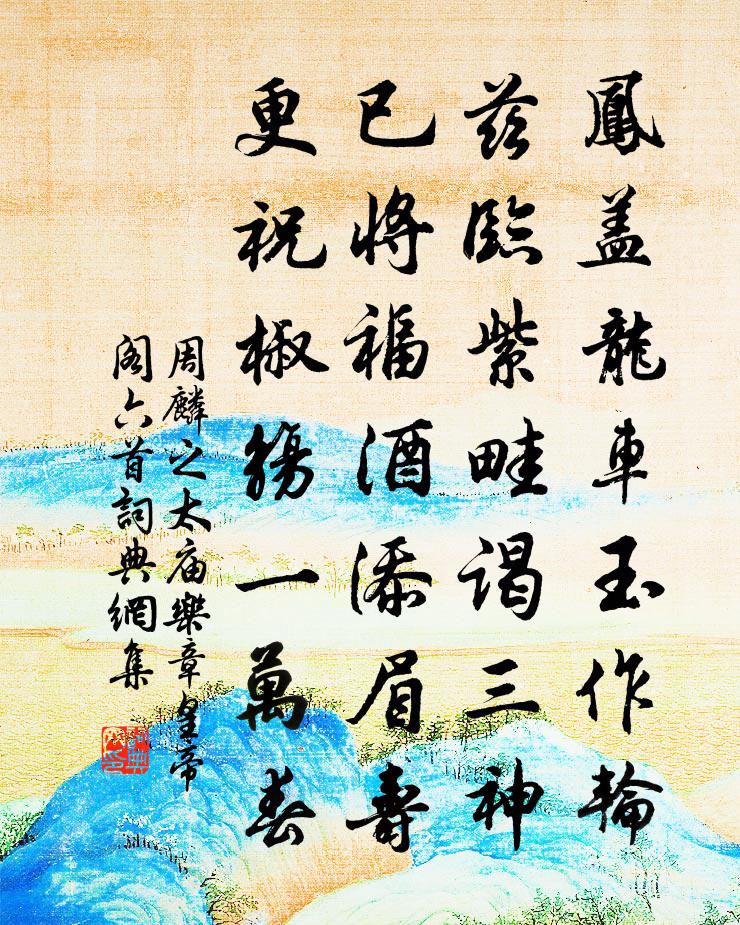 鳳盖龍車玉作輪
茲臨紫畦謁三神
已將福酒添眉壽
更祝椒觴一萬春
周麟之太庙樂章皇帝
閣六首詞典網集